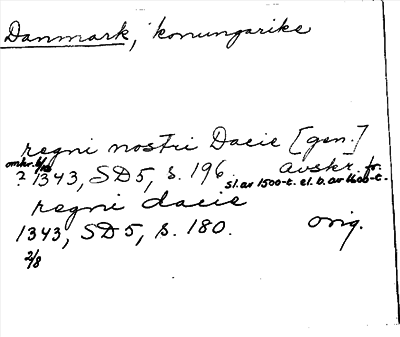 Danmark, konungarike
regni nostri Dacie [gen.]
omkr.
? 1343, SD5, s. 196. Avskr. fr.
sl. av 1500-t. el. b. av 1600-t.
regni dacie
1343, SD5, s. 180. Orig.
2/8